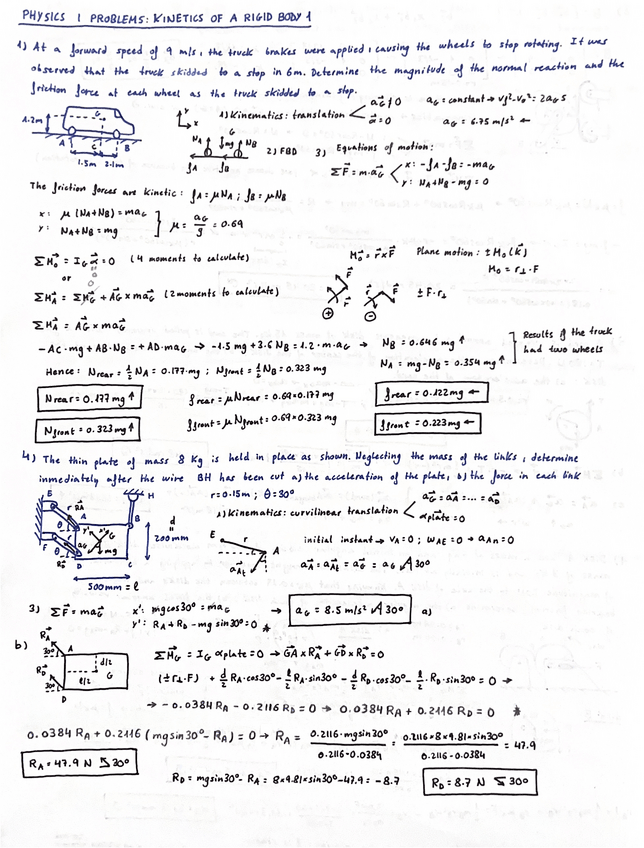 PHYSICS 1 PROBLEMS: KINETICS OF A RIGID BODY 1
1) At a forward speed of 9 m/s, the truck brakes were applied, causing the wheels to stop rotating. It was
observed that the truck skidded to a stop in 6m. Determine the magnitude of the normal reaction and the
friction force at each wheel as the truck skidded to a stop.
1.2m G A C B 1.5m 2.1m
y x
1) Kinematics: translation aG ≠ 0 aG = constant → vf²-vo² = 2aG s
α = 0 aG = 6.75 m/s² ←
NA G mg NB fA fB 2) FBD 3) Equations of motion:
ΣF = m·aG x: -fA - fB = -maG
y: NA+NB-mg = 0
The friction forces are kinetic: fA = μNA ; fB = μNB
x: μ (NA+NB) = maG
y: NA+NB = mg
μ = aG/g = 0.69
ΣMG = IG α = 0 (4 moments to calculate)
or
ΣMA = ΣMG + AG × maG (2 moments to calculate)
Mo = r×F Plane motion: ±Mo (k)
Mo = r⊥·F
r F r F ±F·r⊥
⊕ ⊖
ΣMA = AG × maG
-AC·mg + AB·NB = +AD·maG → -1.5 mg + 3.6 NB = 1.2·m·aG → NB = 0.646 mg ↑
NA = mg-NB = 0.354 mg ↑
Results if the truck
had two wheels
Hence: Nrear = 1/2 NA = 0.177·mg ; Nfront = 1/2 NB = 0.323 mg
Nrear = 0.177 mg ↑ frear = μNrear = 0.69×0.177 mg frear = 0.122 mg ←
Nfront = 0.323 mg ↑ ffront = μNfront = 0.69×0.323 mg ffront = 0.223 mg ←
4) The thin plate of mass 8 Kg is held in place as shown. Neglecting the mass of the links, determine
immediately after the wire BH has been cut a) the acceleration of the plate; b) the force in each link
r = 0.15m ; θ = 30°
E r RA A H B F θ D C G mg aG RD
d
200mm
500mm = l
1) Kinematics: curvilinear translation aG = aA = ... = aD
αplate = 0
E r A aAt
initial instant → vA = 0 ; ωAE = 0 → aAn = 0
aA = aAt = aG = aG 30°
3) ΣF = maG x': mgcos30° = maG → aG = 8.5 m/s² 30° a)
y': RA + RD - mg sin30° = 0 *
b)
RA 30° A RD 30° D d/2 l/2 G
ΣMG = IG αplate = 0 → GA×RA + GD×RD = 0
(±r⊥·F) + d/2 RA·cos30° - l/2 RA·sin30° - d/2 RD·cos30° - l/2·RD·sin30° = 0 →
→ -0.0384 RA - 0.2116 RD = 0 → 0.0384 RA + 0.2116 RD = 0 *
0.0384 RA + 0.2116 (mgsin30° - RA) = 0 → RA = 0.2116·mgsin30° / 0.2116-0.0384 = 0.2116×8×9.81×sin30° / 0.2116-0.0384 = 47.9
RA = 47.9 N 30°
RD = mgsin30° - RA = 8×9.81×sin30° - 47.9 = -8.7 RD = 8.7 N 30°